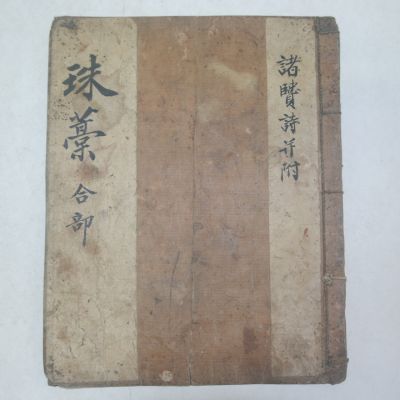 珠藁 合部
諸賢詩并附